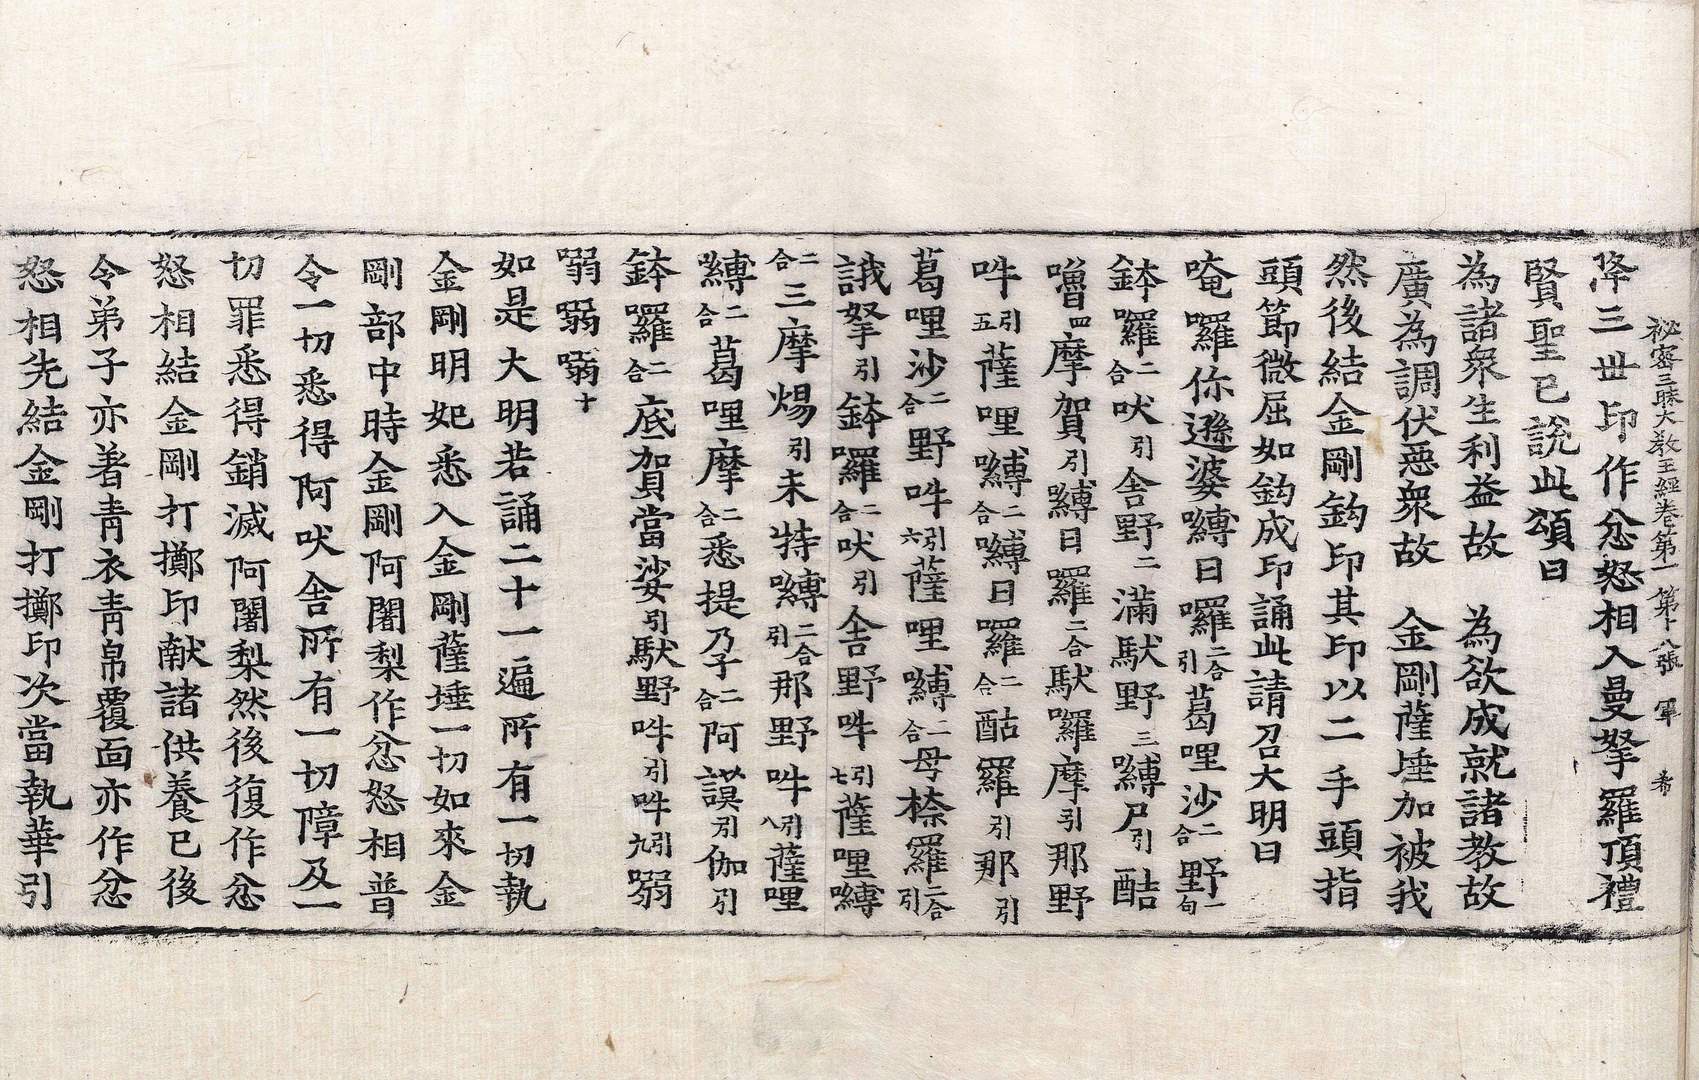 祕密三昧大教王經卷第一 第十八張 軍 希
降三世印作忿怒相入曼拏羅頂禮
賢聖已說此頌曰
為諸衆生利益故 為欲成就諸教故
廣為調伏惡衆故 金剛薩埵加被我
然後結金剛鈎印其印以二手頭指
頭節微屈如鈎成印誦此請召大明曰
唵囉你遜婆嚩日囉二合引葛哩沙二合野一句
鉢囉二合吠引舍野二滿馱野三嚩尸引酤
嚕四摩賀引嚩日囉二合馱囉摩引那野
吽引五薩哩嚩二合嚩日囉二合酤羅引那引
葛哩沙二合野吽引六薩哩嚩二合母捺羅二合引
誐拏引鉢囉二合吠引舍野吽引七薩哩嚩
二合三摩煬引未特嚩二合引那野吽引八薩哩
嚩二合葛哩摩二合悉提乃子二合阿誐引伽引
鉢囉二合底賀當娑引馱野吽引吽引九嗍
嗍嗍嗍十
如是大明若誦二十一遍所有一切執
金剛明妃悉入金剛薩埵一切如來金
剛部中時金剛阿闍梨作忿怒相普
令一切悉得阿吠舍所有一切障及一
切罪悉得銷滅阿闍梨然後復作忿
怒相結金剛打擲印獻諸供養已後
令弟子亦著青衣青帛覆面亦作忿
怒相先結金剛打擲印次當執華引